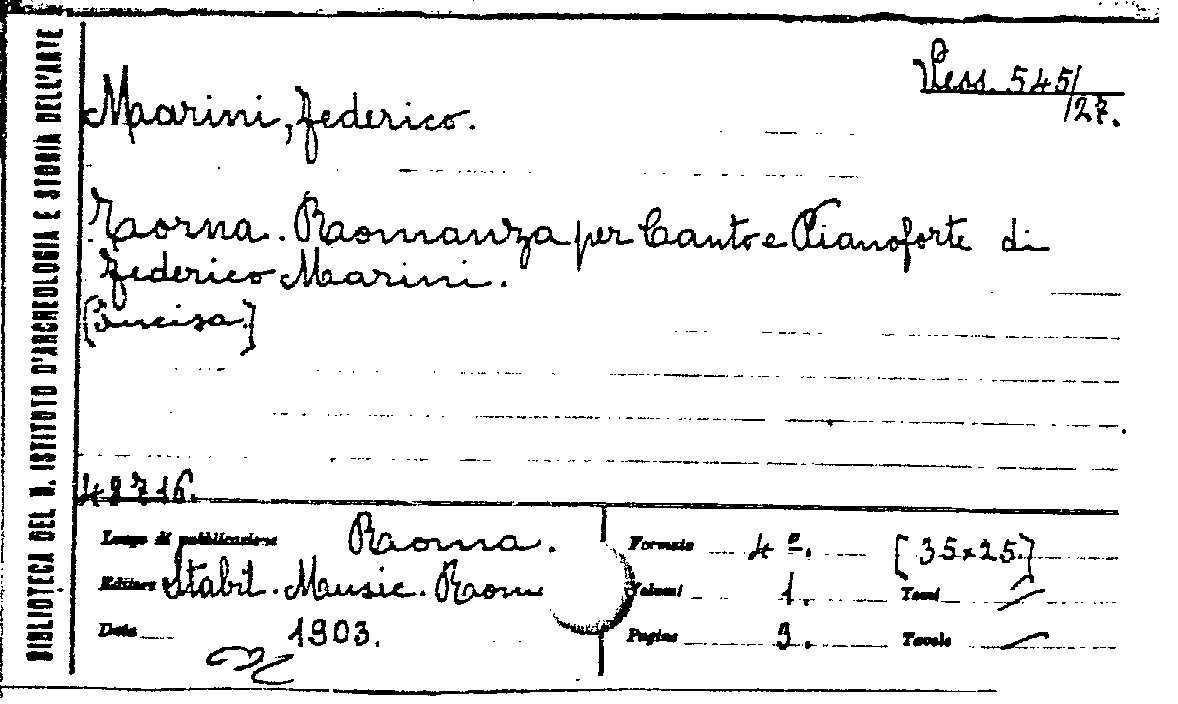 BIBLIOTECA DEL R. ISTITUTO D'ARCHEOLOGIA E STORIA DELL'ARTE
Vess. 545/
/27.
Marini, Federico.
Torna. Romanza per Canto e Pianoforte di
Federico Marini.
[Incisa.]
48716.
Luogo di pubblicazione Roma.
Editore Stabil. Music. Rom
Data 1903.
Formato 4º. [35x25.]
Volumi 1. Tomi
Pagine 3. Tavole